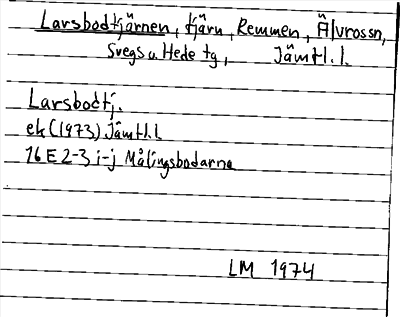 Larsbodtjärnen, tjärn, Remmen, Älvrossn,
Svegs o. Hede tg, Jämtl. l.
Larsbodtj.
ek (1973) Jämtl. l
16 E 2-3 i-j Målingsbodarna
LM 1974